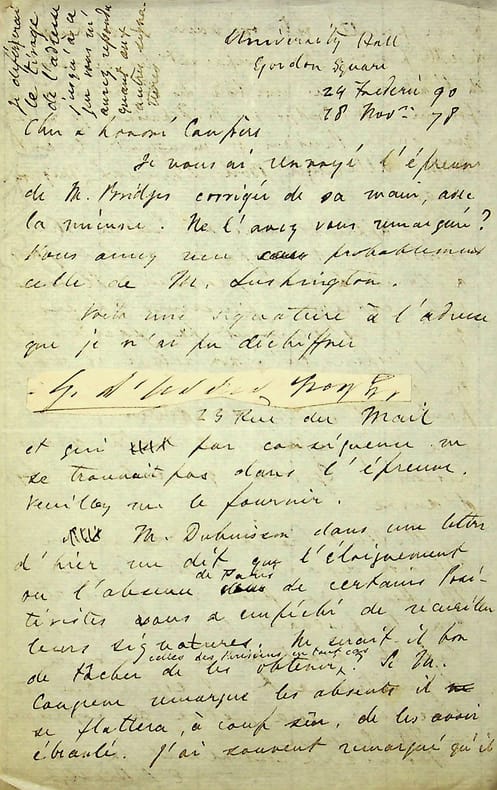 Je différerai
le tirage
de l'adresse
jusqu'à ce
que vous m'
aurez répondu
quant aux
autres signa
tures
University Hall
Gordon Square
24 Frederic 90
18 Novre 78
Cher & honoré Confrère
Je vous ai renvoyé l'épreuve
de M. Bridges corrigée de sa main, avec
la mienne. Ne l'avez vous remarqué?
Vous aurez reçu probablement
celle de M. Lushington.
Voici une signature à l'adresse
que je n'ai pu déchiffrer
23 Rue du Mail
et qui par conséquence ne
se trouvait pas dans l'épreuve.
Veuillez me le fournir.
M. Dubuisson dans une lettre
d'hier me dit que l'éloignement
ou l'absence de Paris de certains Posi-
tivistes vous a empêché de recueillir
leurs signatures. Ne serait il bon
de tâcher de les obtenir, celles des Parisiens en tout cas? Si M.
Congreve remarque les absents il
se flattera, à coup sûr, de les avoir
ébranlé. J'ai souvent remarqué qu'il